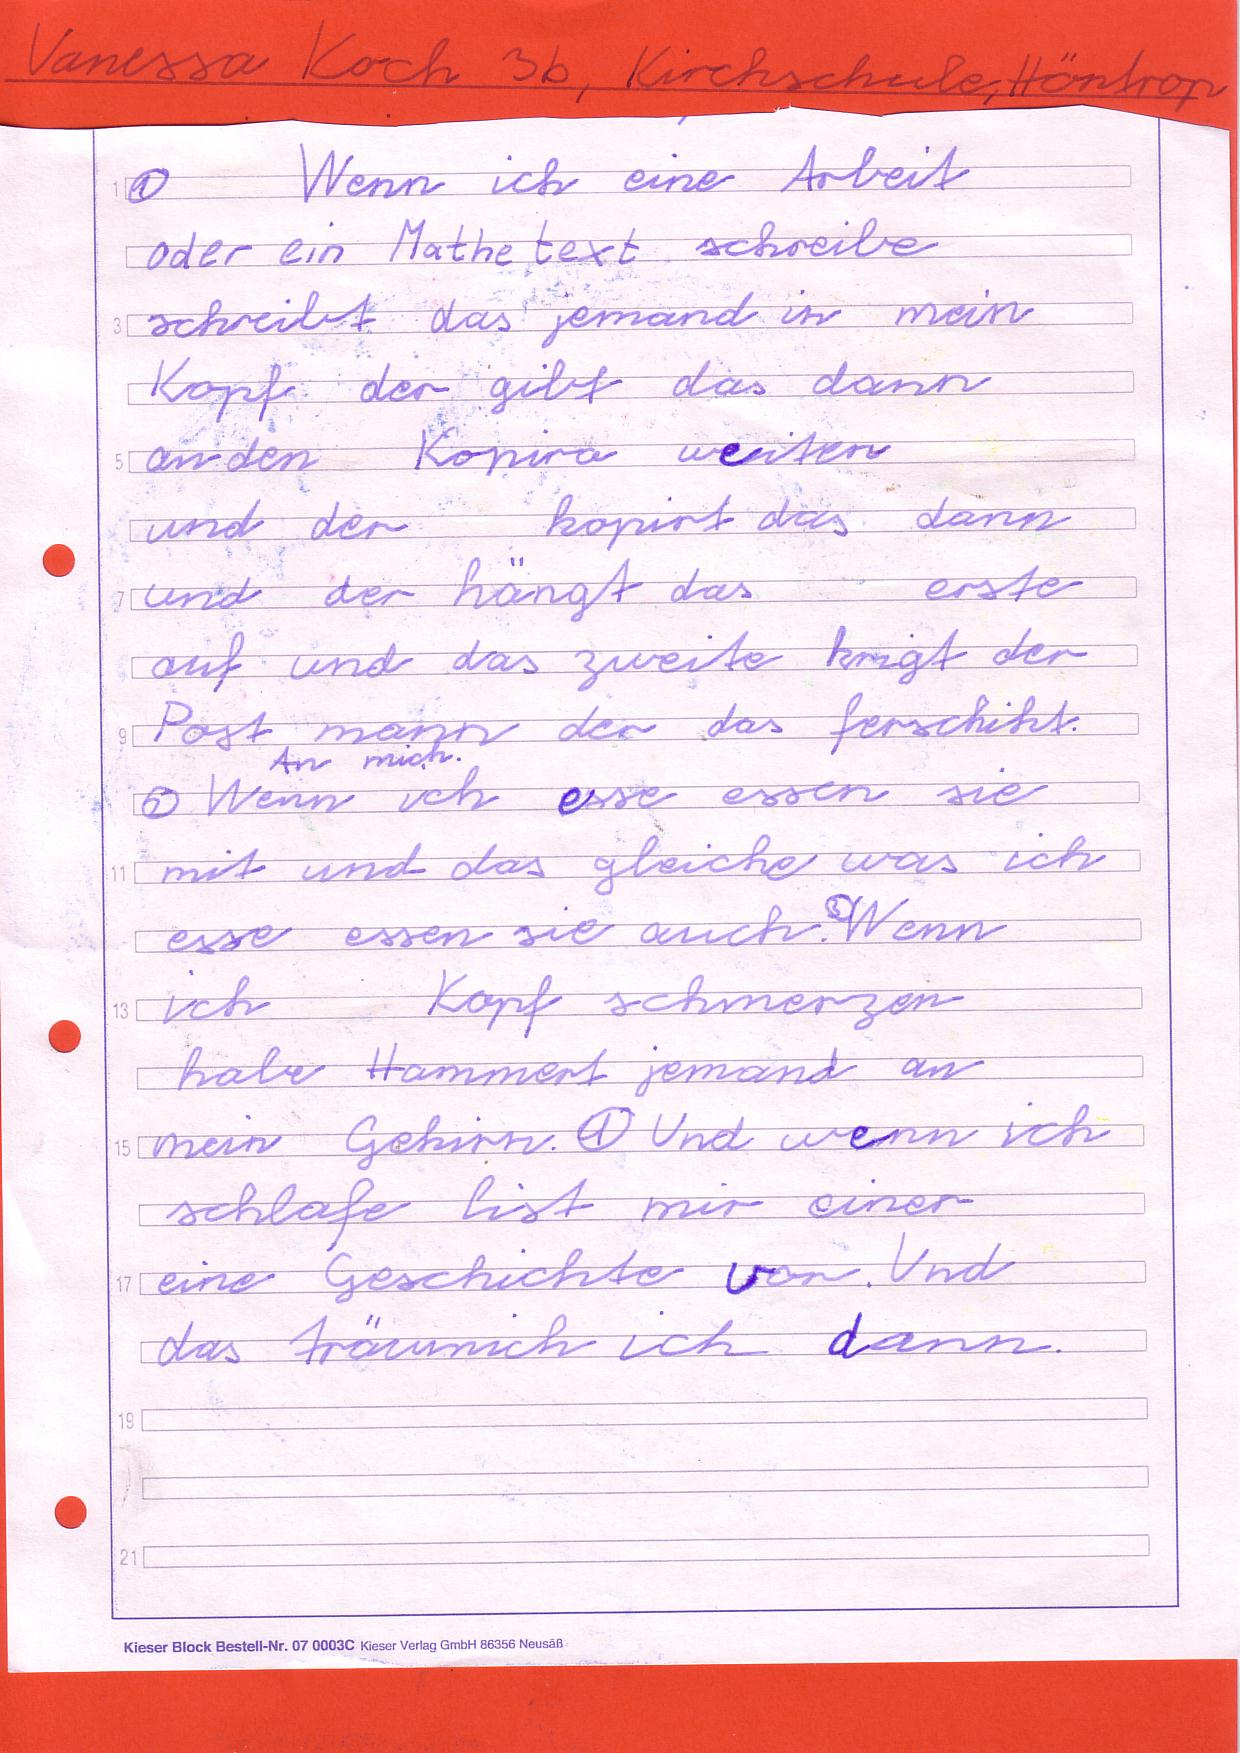 Vanessa Koch 3b, Kirchschule, Höntrop
1 ① Wenn ich eine Arbeit
oder ein Mathe text schreibe
3 schreibt das jemand in mein
Kopf der gibt das dann
5 an den Kopira weiter
und der kopirt das dann
7 und der hängt das erste
auf und das zweite krigt der
9 Post mann der das ferschikt.
An mich.
② Wenn ich esse essen sie
11 mit und das gleiche was ich
esse essen sie auch. ③ Wenn
13 ich Kopf schmerzen
habe Hammert jemand an
15 mein Gehirn. ④ Und wenn ich
schlafe list mir einer
17 eine Geschichte vor. Und
das träumich ich dann.
19
21
Kieser Block Bestell-Nr. 07 0003C Kieser Verlag GmbH 86356 Neusäß